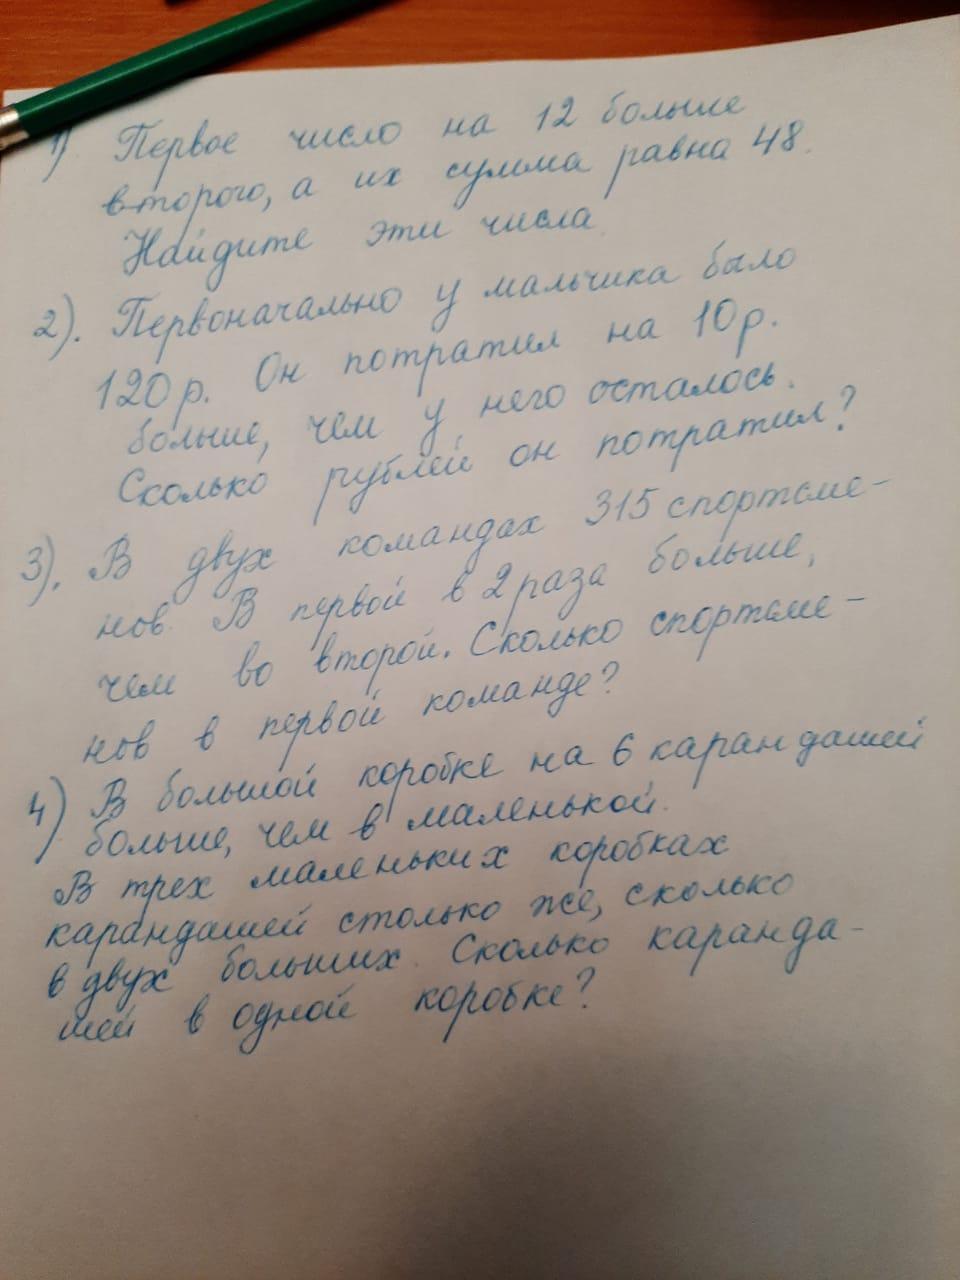 1) Первое число на 12 больше
второго, а их сумма равна 48.
Найдите эти числа.
2). Первоначально у мальчика было
120 р. Он потратил на 10 р.
больше, чем у него осталось.
Сколько рублей он потратил?
3). В двух командах 315 спортсме-
нов. В первой в 2 раза больше,
чем во второй. Сколько спортсме-
нов в первой команде?
4) В большой коробке на 6 карандашей
больше, чем в маленькой.
В трех маленьких коробках
карандашей столько же, сколько
в двух больших. Сколько каранда-
шей в одной коробке?